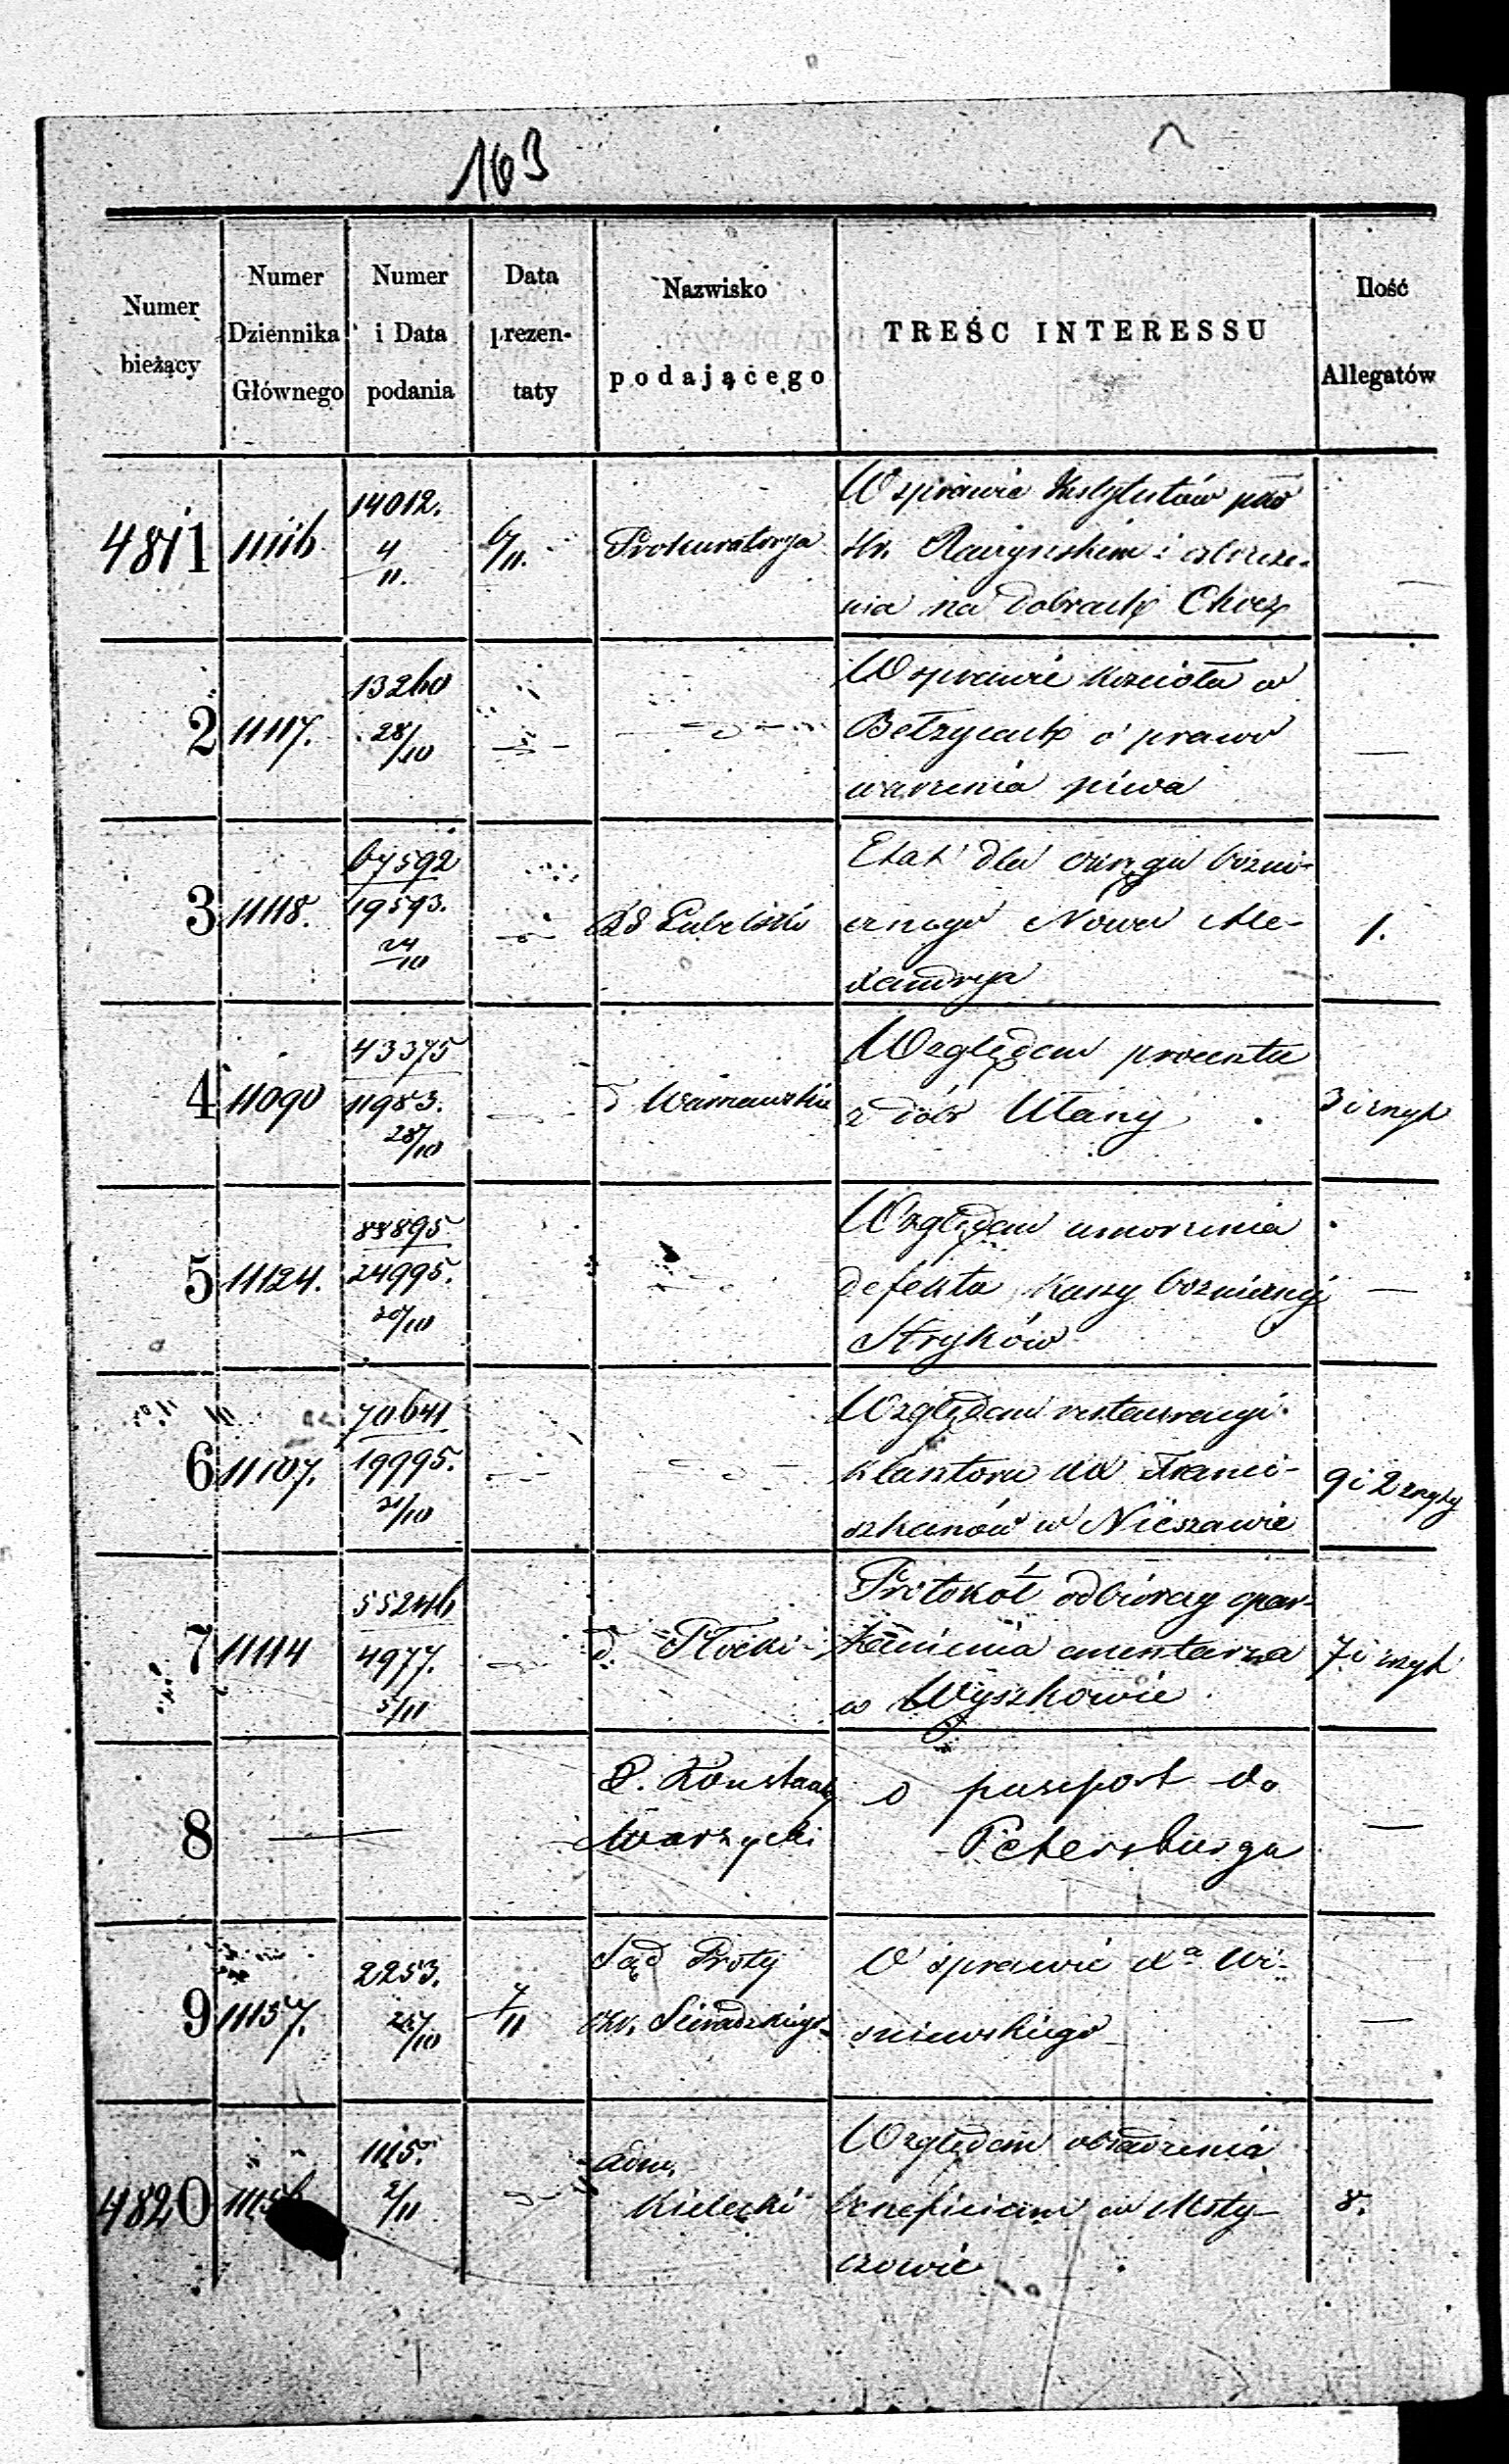 163
Numer bieżący
Numer Dziennika Głównego
Numer i Data podania
Data prezen- taty
Nazwisko podającego
TREŚC INTERESSU
Ilość Allegatów
4811 11116 14012. 4/11. 6/11. Prokuratorya
W sprawie Instytutów pko
Raczyńskim i
nia na dobrach Chocz
—
2 11117. 13260 28/10
W sprawie kościoła w
Bełzycach o prawo
warzenia piwa
—
3 11118. 67592 19593. 24/10 Lubelski
Etat dla okręgu bożni-
cznego Nowa Ale-
xandrya
1.
4 11090 43375 11983. 28/10 d Warszawski
Względem procentu
z dóbr Utany
3 i
5 11124. 83895 24995. 30/10
Względem umorzenia
defektu kassy bożnicznej
Stryków
—
6 11107. 70641 19995. 31/10
Względem restauracyi
klasztoru XX Franci-
szkanów w Nieszawie
9 i 2
7 11114 55246 4977. 5/11 d. Płocki
Protokół odbiorczy opar-
kanienia cmentarza
w Wyszkowie
7 i
8 — Konstanty
o paszport do
Petersburga
—
9 11157. 2253. 7/11
Sąd Prosty
okr. Sieradzkiego
W sprawie Xa Wi-
śniewskiego
—
4820 1115. 2/11
Adm.
Kielecki
Względem obsadzenia
beneficium w Msty-
czowie
8.